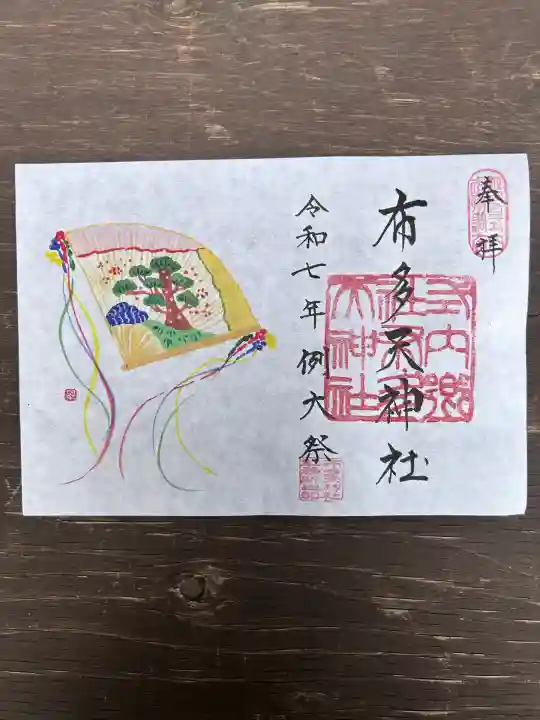 奉拝
布多天神社
式内郷社布多天神社
令和七年例大祭